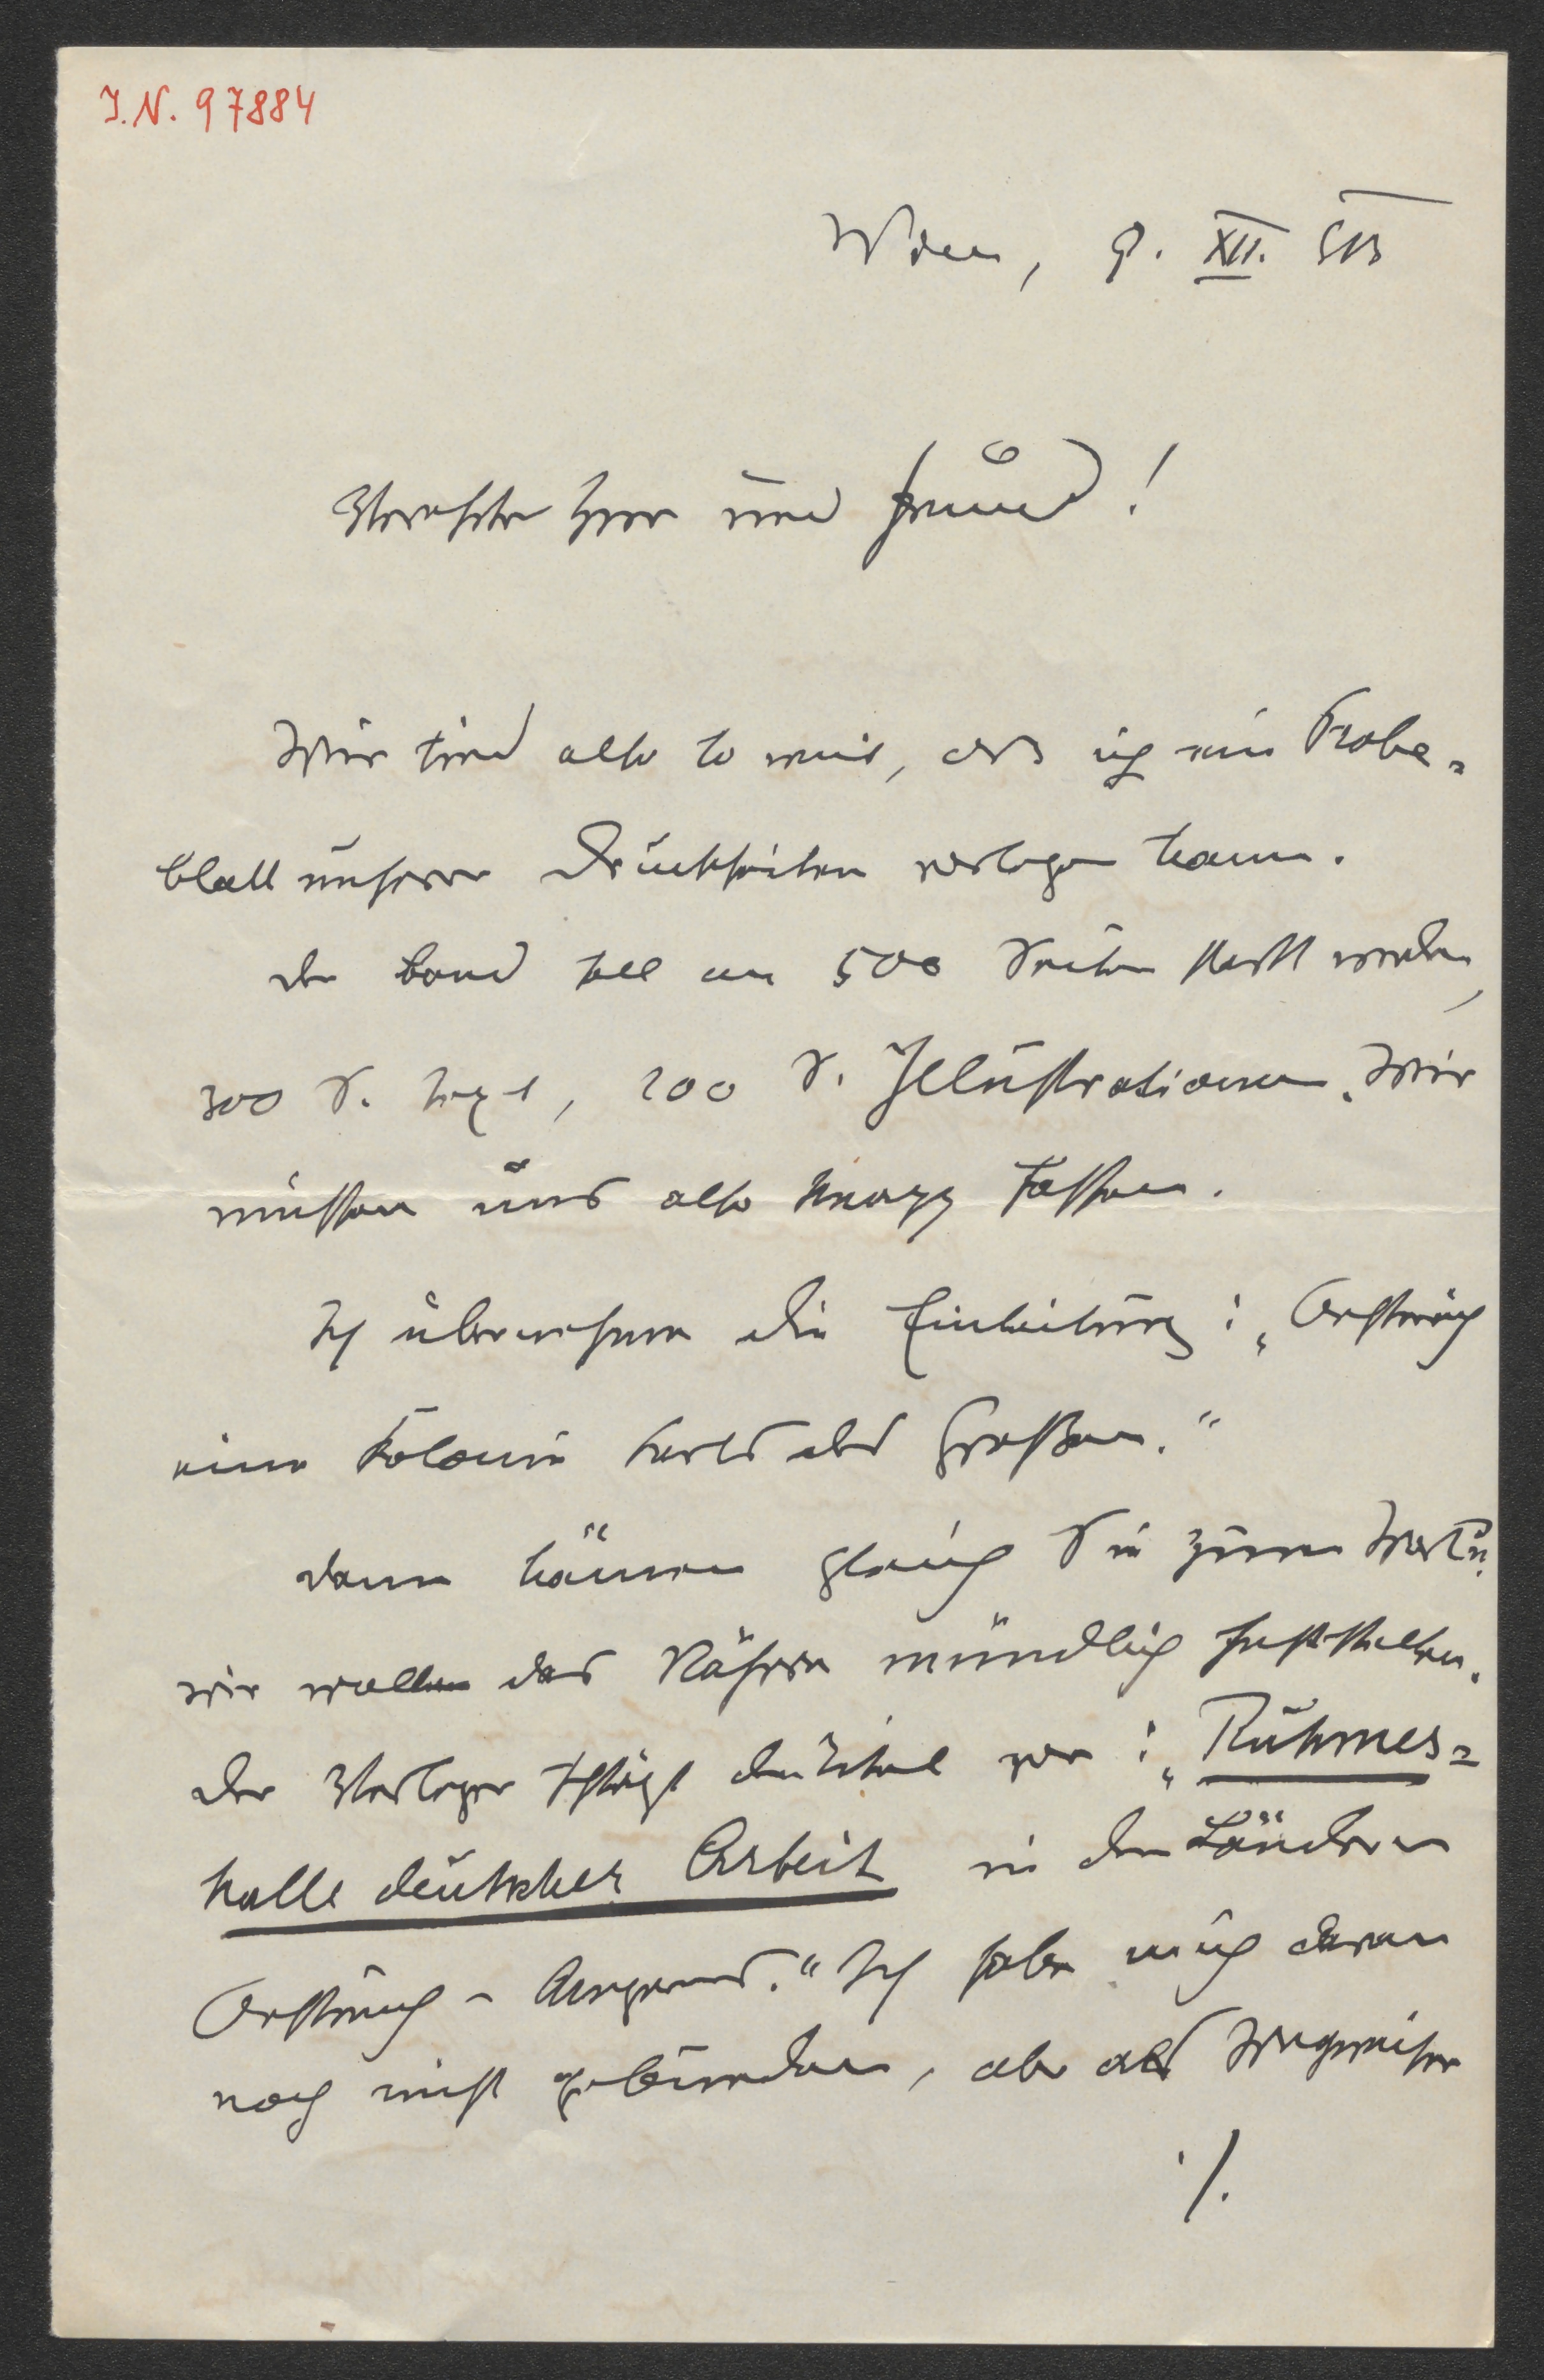 J.N. 97884
Wien, 9. XII. 913
Verehrter Herr und Freund!
Wir sind also so weit, daß ich ein Probe-
blatt unserer Druckseiten vorlegen kann.
Der Band soll an 500 Seiten stark werden,
300 S. Text, 200 S. Illustrationen. Wir
müssen uns also knapp fassen.
Ich übernehme die Einleitung: „Österreich
eine Kolonie Karls des Großen."
Dann kämen gleich Sie zum Wort u.
wir wollen das Nähere mündlich feststellen.
Der Verleger schlägt den Titel vor: „Ruhmes-
halle deutscher Arbeit in den Ländern
Österreich-Ungarns." Ich habe mich daran
noch nicht gebunden, aber als Wegweiser
./.